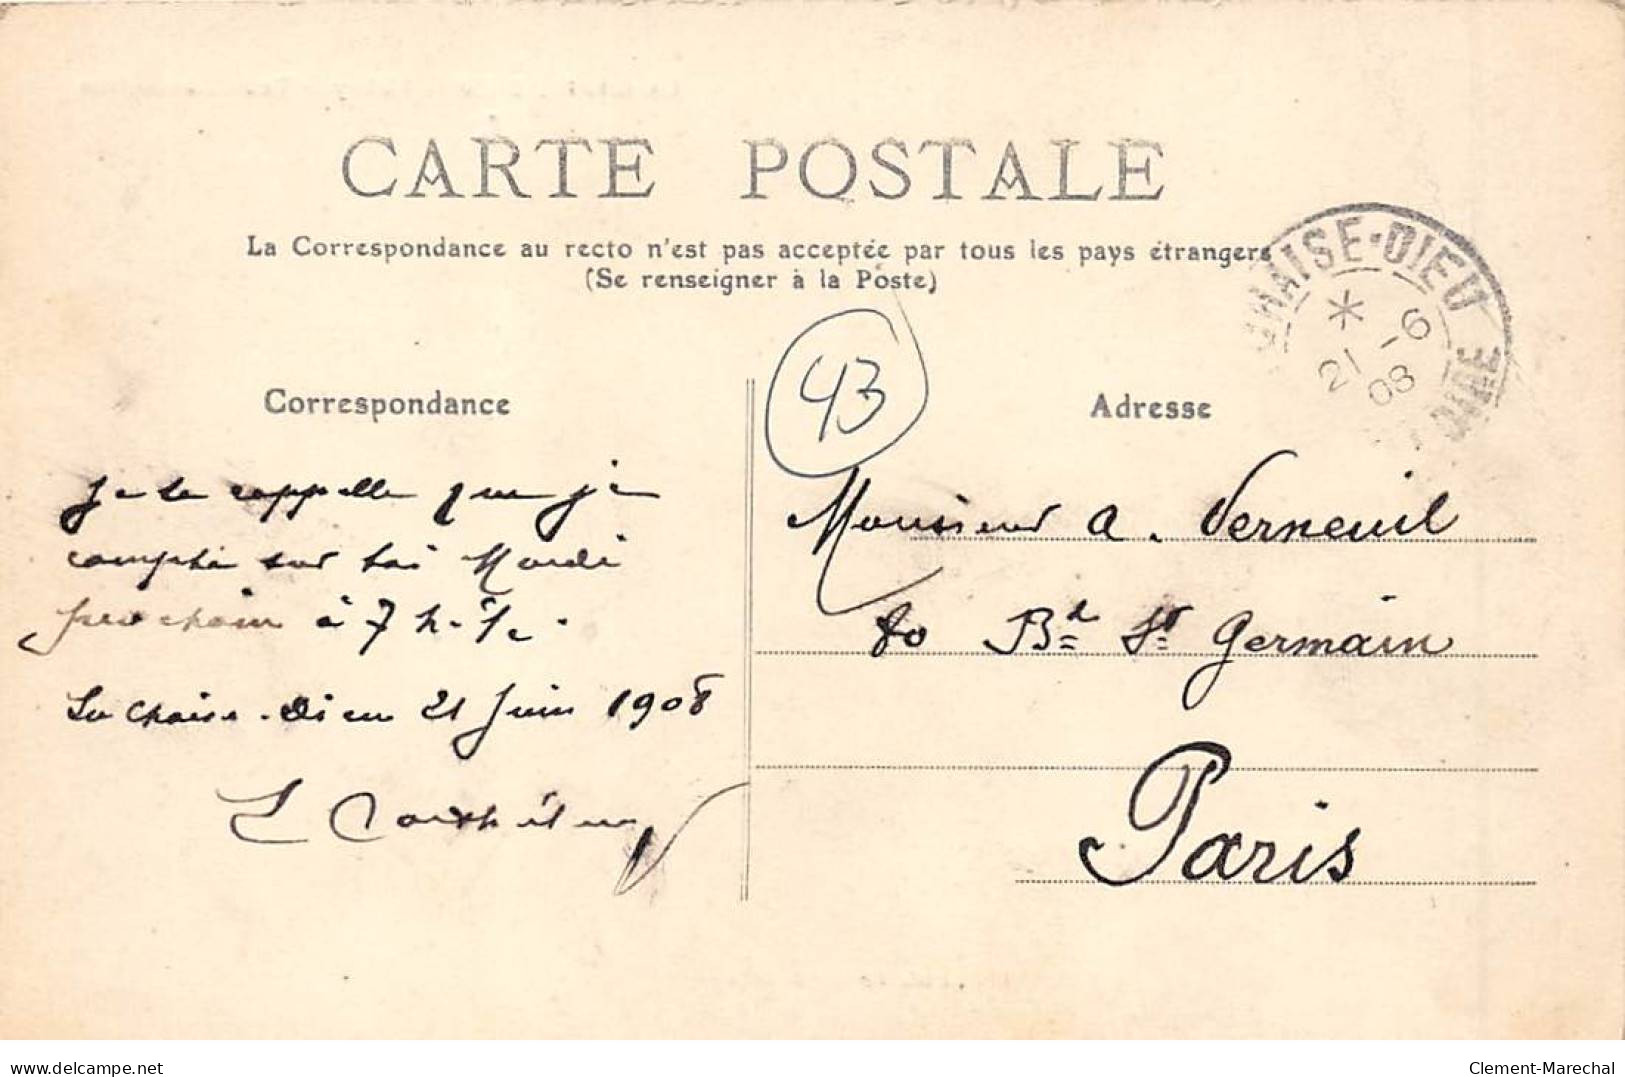 CARTE POSTALE
La Correspondance au recto n'est pas acceptée par tous les pays étrangers
(Se renseigner à la Poste)
CHAISE-DIEU
21 -6
08
43
Correspondance
Adresse
Je te rappelle que je
compte sur toi Mardi
prochain à 7 h.
La Chaise-Dieu 21 Juin 1908
Monsieur A. Verneuil
80 Bd St Germain
Paris
www.delcampe.net
Clement-Marechal